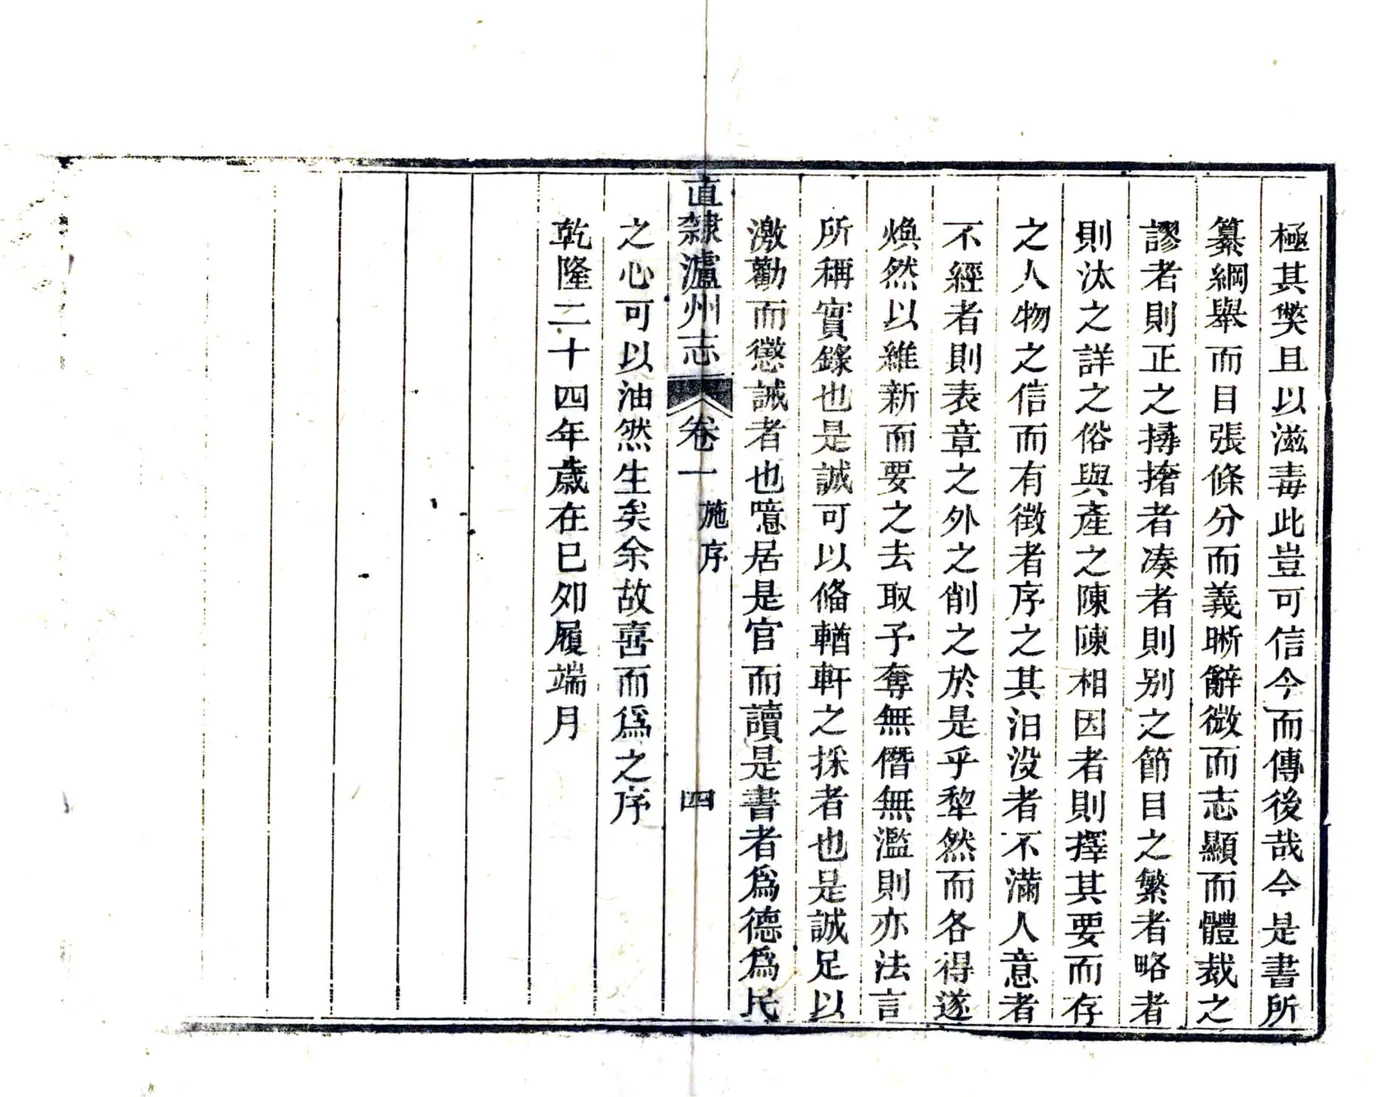 極其獘且以滋毒此豈可信今而傳後哉今是書所
纂綱舉而目張條分而義晰辭微而志顯而體裁之
謬者則正之撏撦者湊者則别之節目之繁者略者
則汰之詳之俗與產之陳陳相因者則擇其要而存
之人物之信而有徵者序之其汩没者不滿人意者
不經者則表章之外之削之於是乎犂然而各得遂
煥然以維新而要之去取予奪無僭無濫則亦法言
所稱實錄也是誠可以備輶軒之採者也是誠足以
激勸而懲誡者也噫居是官而讀是書者爲德爲民
直隸瀘州志
卷一
施序
四
之心可以油然生矣余故喜而爲之序
乾隆二十四年歲在已夘履端月